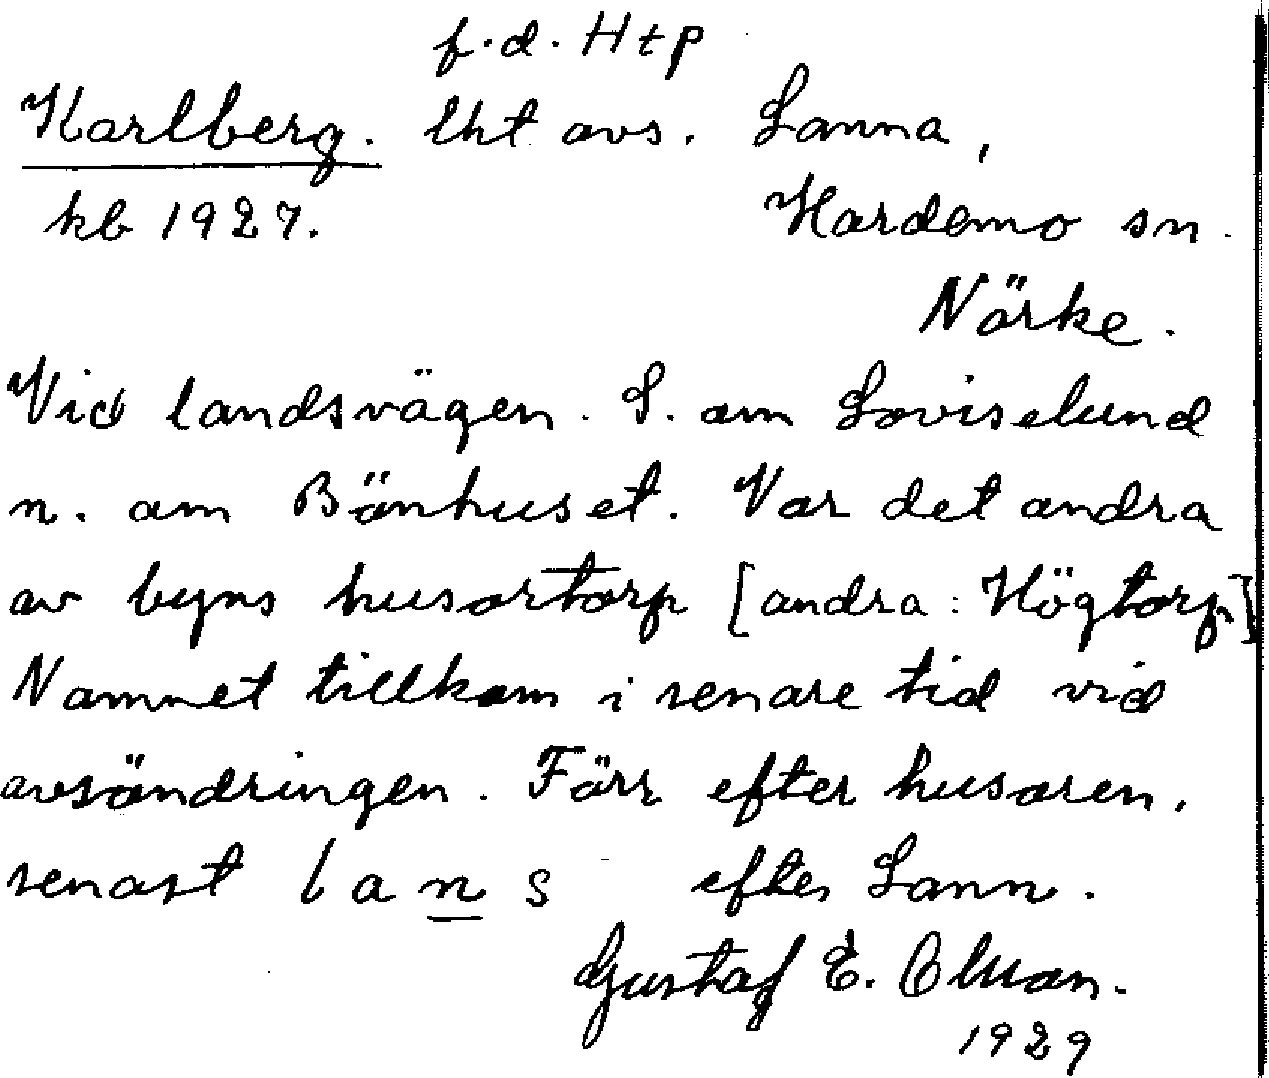 f.d. Htp
Karlberg. lht avs. Lanna,
kb 1927.
Hardemo sn.
Närke.
Vid landsvägen. S. om Loviselund
n. om Bönhuset. Var det andra
av byns husartorp [andra: Högtorp]
Namnet tillkom i senare tid vid
avsöndringen. Förr efter husaren,
senast lans efter Lann.
Gustaf E.
1929